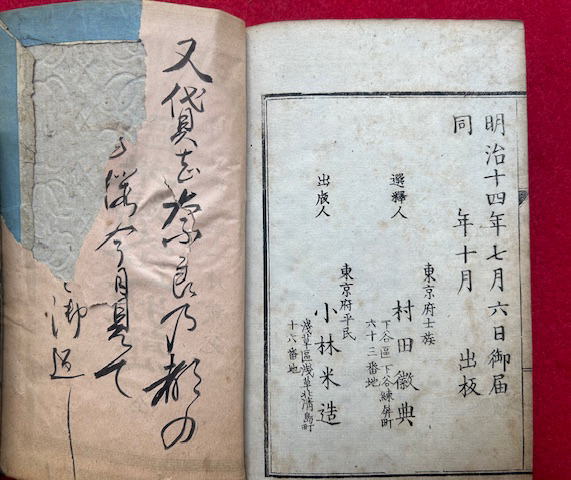 明治十四年七月六日御届
同 年十月 出板
東京府士族
選釋人 村田徽典
下谷區下谷練屏町
六十三番地
東京府平民
出版人 小林米造
浅草區浅草北清島町
十六番地
又貸志奈良乃都の
今日見て
御返